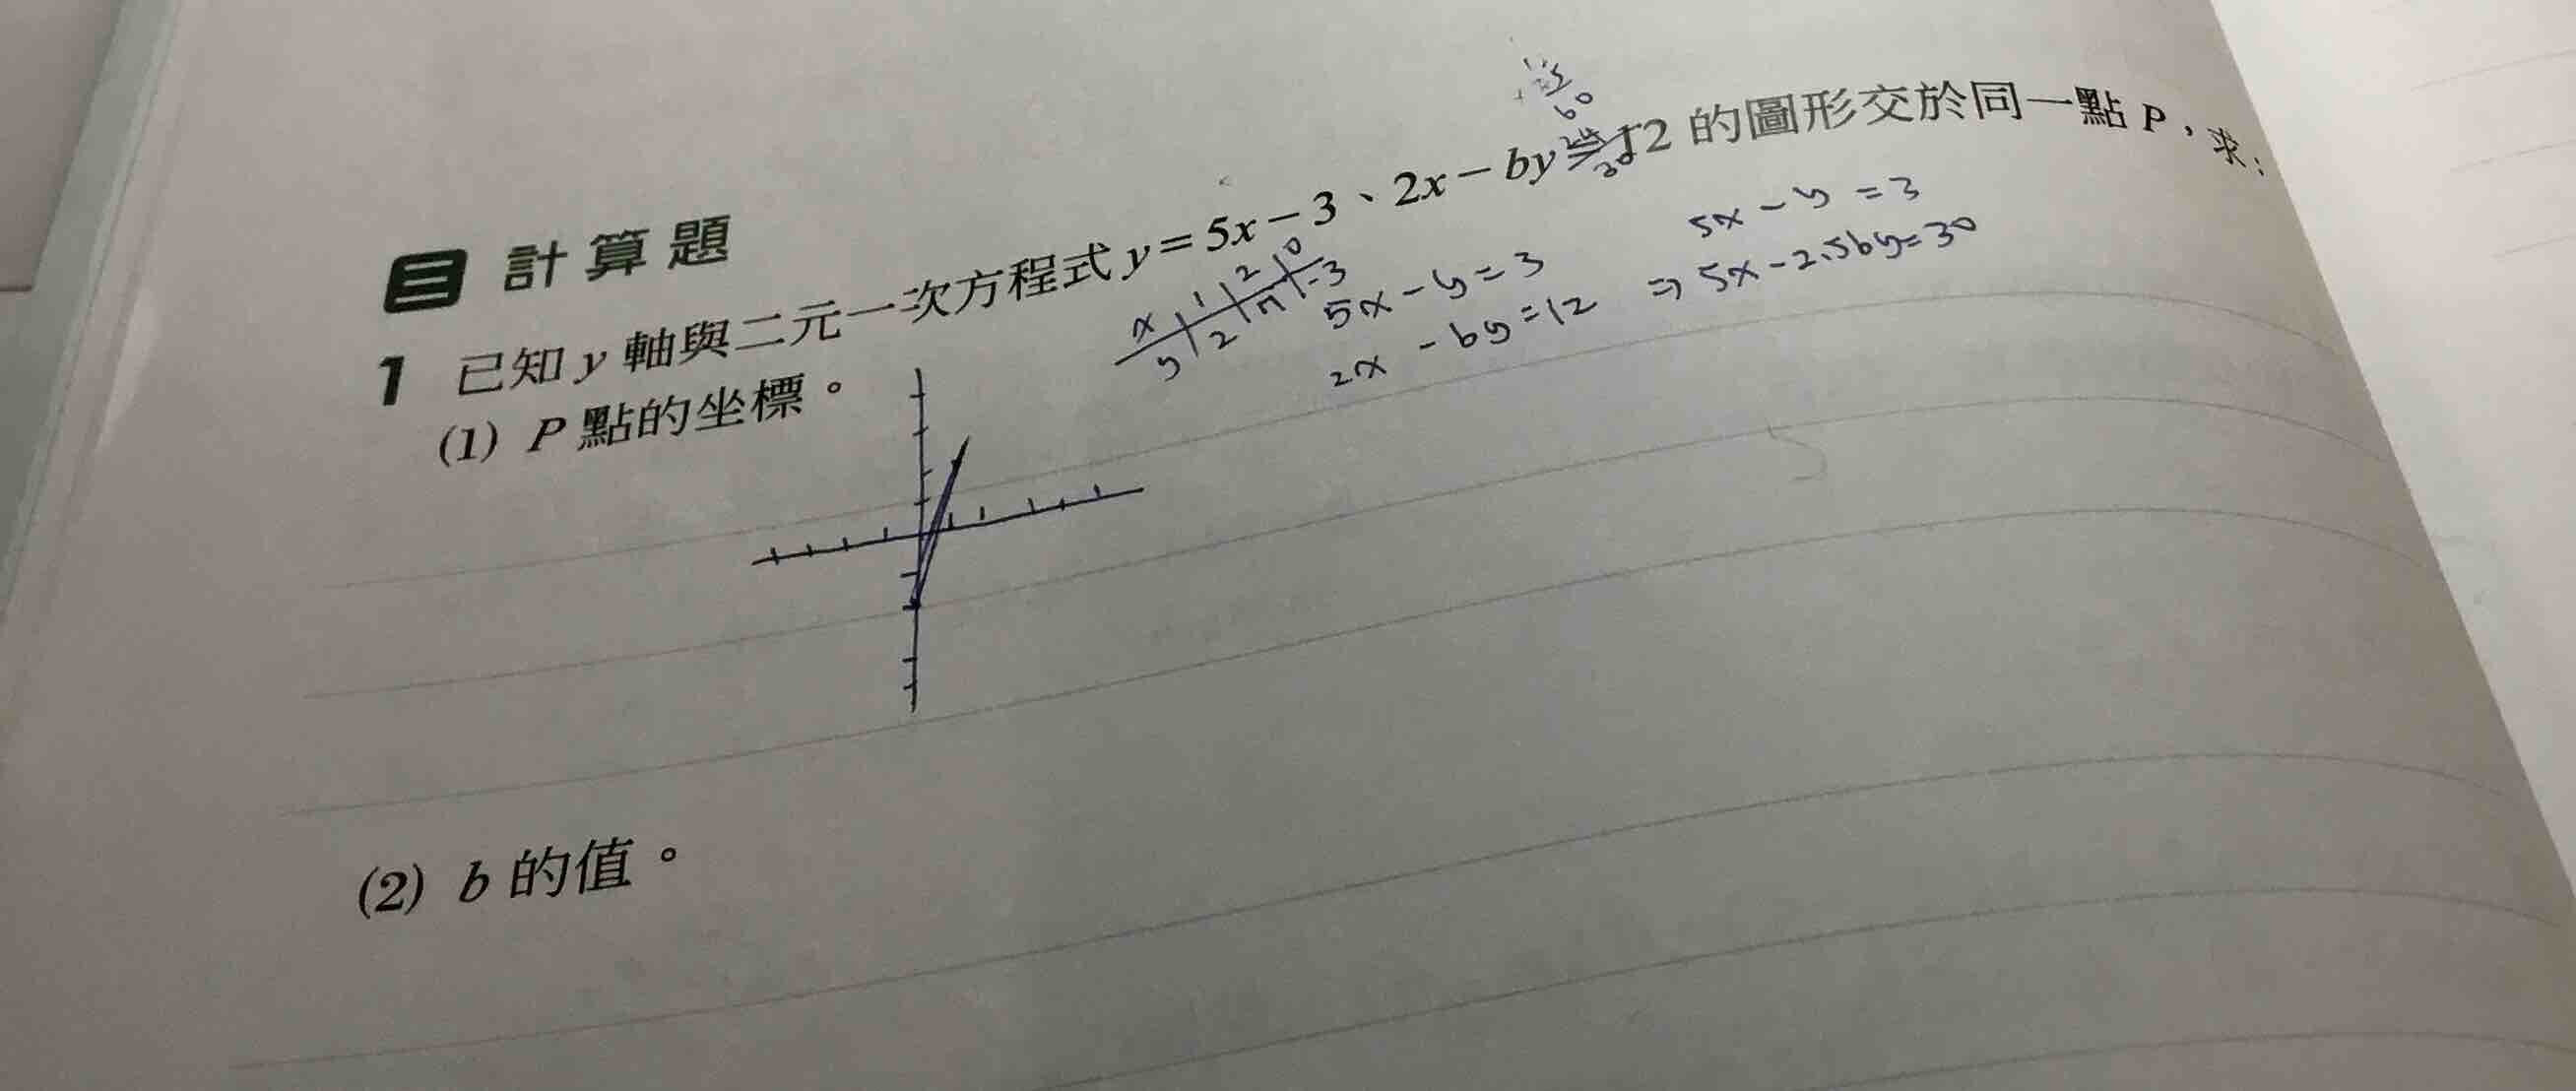 三 計算題
1 已知 y 軸與二元一次方程式 y=5x-3、2x-by=12 的圖形交於同一點 P，求：
(1) P 點的坐標。
x 1 2 0
y 2 7 -3
5x-y=3
2x-by=12
5x-y=3
⇒ 5x-2.5by=30
(2) b 的值。